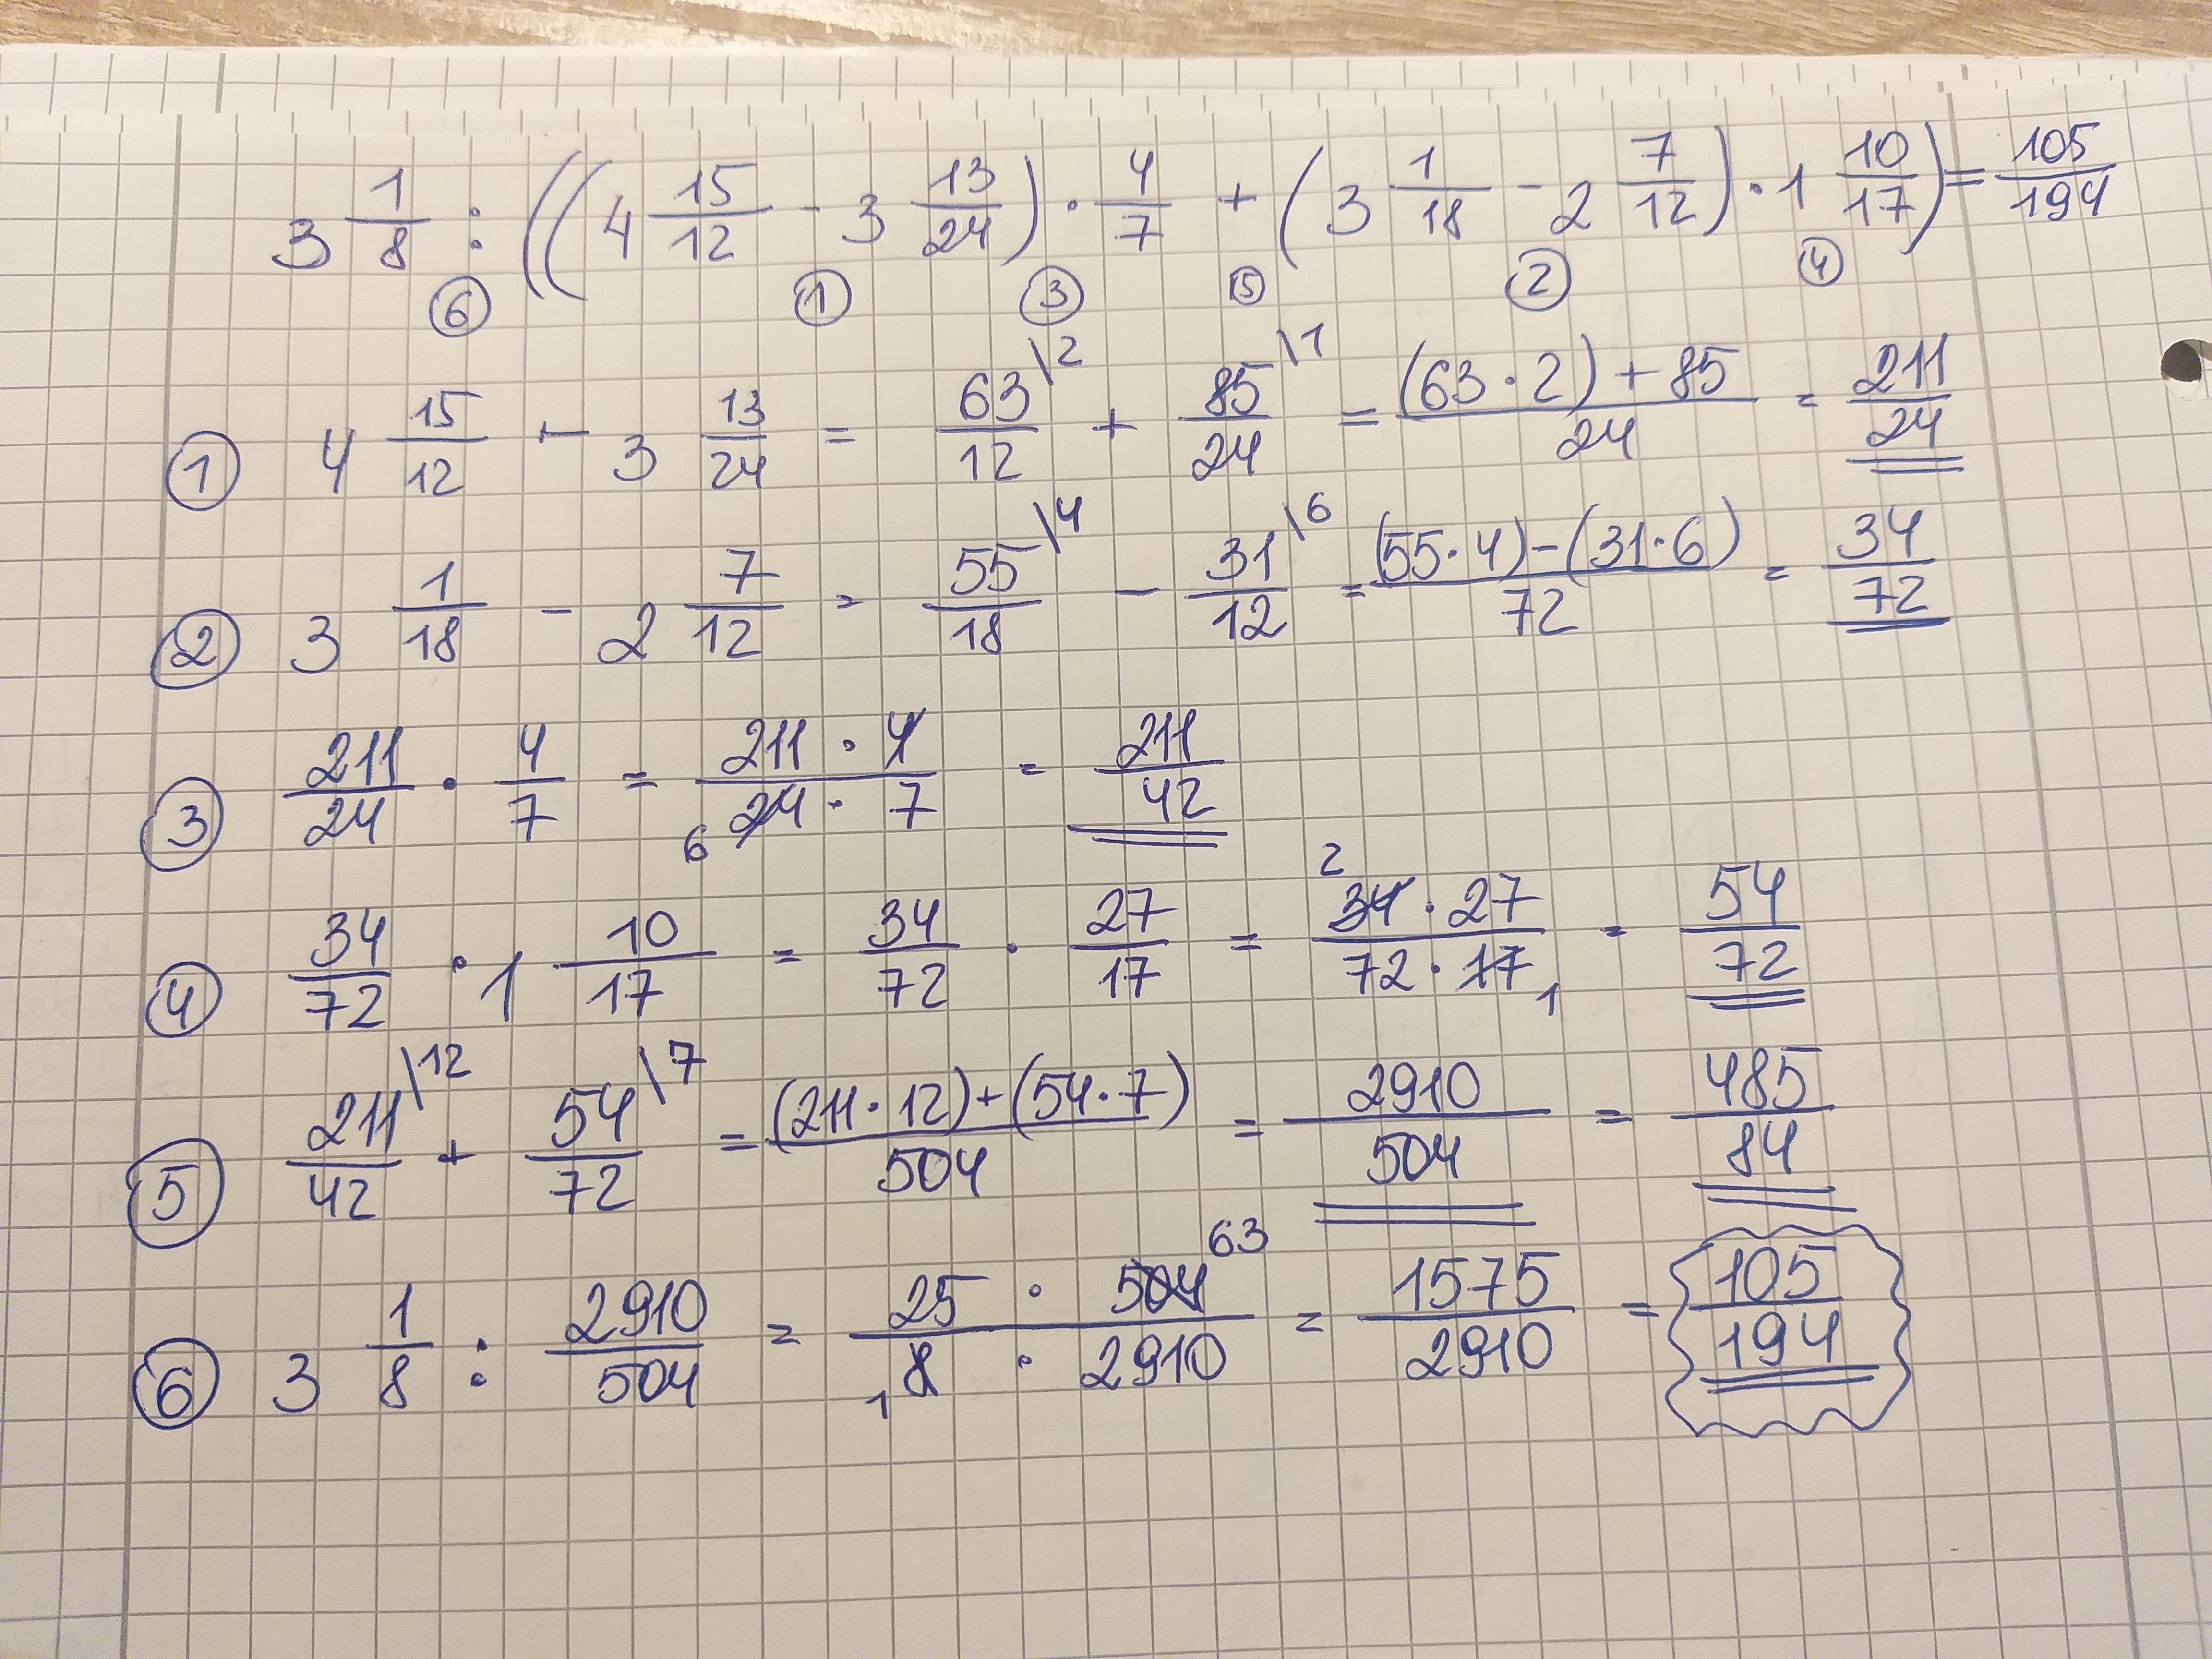 3 1/8 : ((4 15/12 - 3 13/24) · 4/7 + (3 1/18 - 2 7/12) · 1 10/17) = 105/194
⑥ ① ③ ⑤ ② ④
① 4 15/12 - 3 13/24 = 63/12 \2 + 85/24 \1 = (63 · 2) + 85 / 24 = 211/24
② 3 1/18 - 2 7/12 = 55/18 \4 - 31/12 \6 = (55 · 4) - (31 · 6) / 72 = 34/72
③ 211/24 · 4/7 = 211 · 4 / 6 24 · 7 = 211/42
④ 34/72 · 1 10/17 = 34/72 · 27/17 = 2 34 · 27 / 72 · 17 1 = 54/72
⑤ 211/42 \12 + 54/72 \7 = (211 · 12) + (54 · 7) / 504 = 2910/504 = 485/84
⑥ 3 1/8 : 2910/504 = 25 · 504 63 / 1 8 · 2910 = 1575/2910 = 105/194